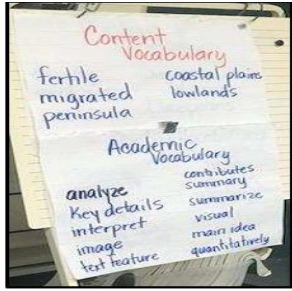 Content
Vocabulary
fertile
migrated
peninsula
coastal plains
lowlands
Academic
Vocabulary
analyze
Key details
interpret
image
text feature
contributes
summary
summarize
visual
main idea
quantitatively